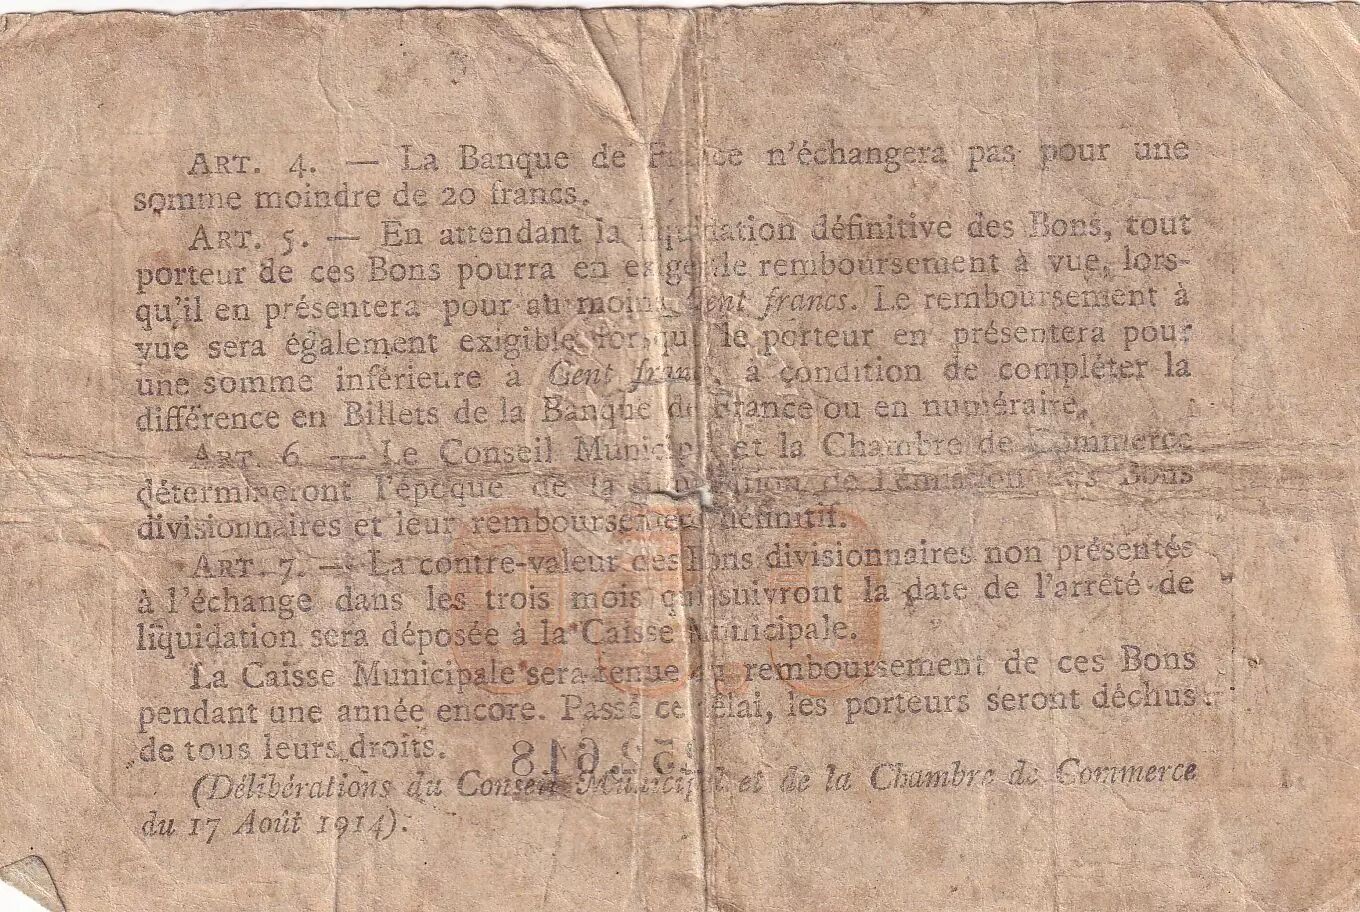 ART. 4. — La Banque de France n'échangera pas pour une
somme moindre de 20 francs.
ART. 5. — En attendant la liquidation définitive des Bons, tout
porteur de ces Bons pourra en exiger le remboursement à vue, lors-
qu'il en présentera pour au moins Cent francs. Le remboursement à
vue sera également exigible lorsque le porteur en présentera pour
une somme inférieure à Cent francs, à condition de compléter la
différence en Billets de la Banque de France ou en numéraire.
ART. 6. — Le Conseil Municipal et la Chambre de Commerce
détermineront l'époque de la liquidation de l'émission des Bons
divisionnaires et leur remboursement définitif.
ART. 7. — La contre-valeur des Bons divisionnaires non présentés
à l'échange dans les trois mois qui suivront la date de l'arrêté de
liquidation sera déposée à la Caisse Municipale.
La Caisse Municipale sera tenue au remboursement de ces Bons
pendant une année encore. Passé ce délai, les porteurs seront déchus
de tous leurs droits.
(Délibérations du Conseil Municipal et de la Chambre de Commerce
du 17 Août 1914).